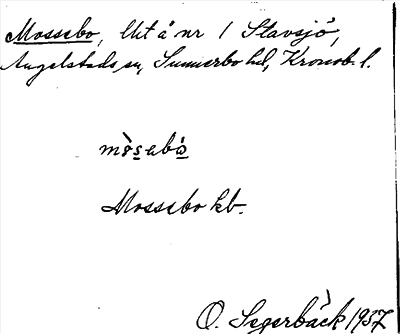 Mossebo, lht å nr 1 Stavsjö,
Angelstads sn, Sunnerbo hd, Kronob. l.
mòsabò
Mossebo kb.
O. Segerbäck 1937